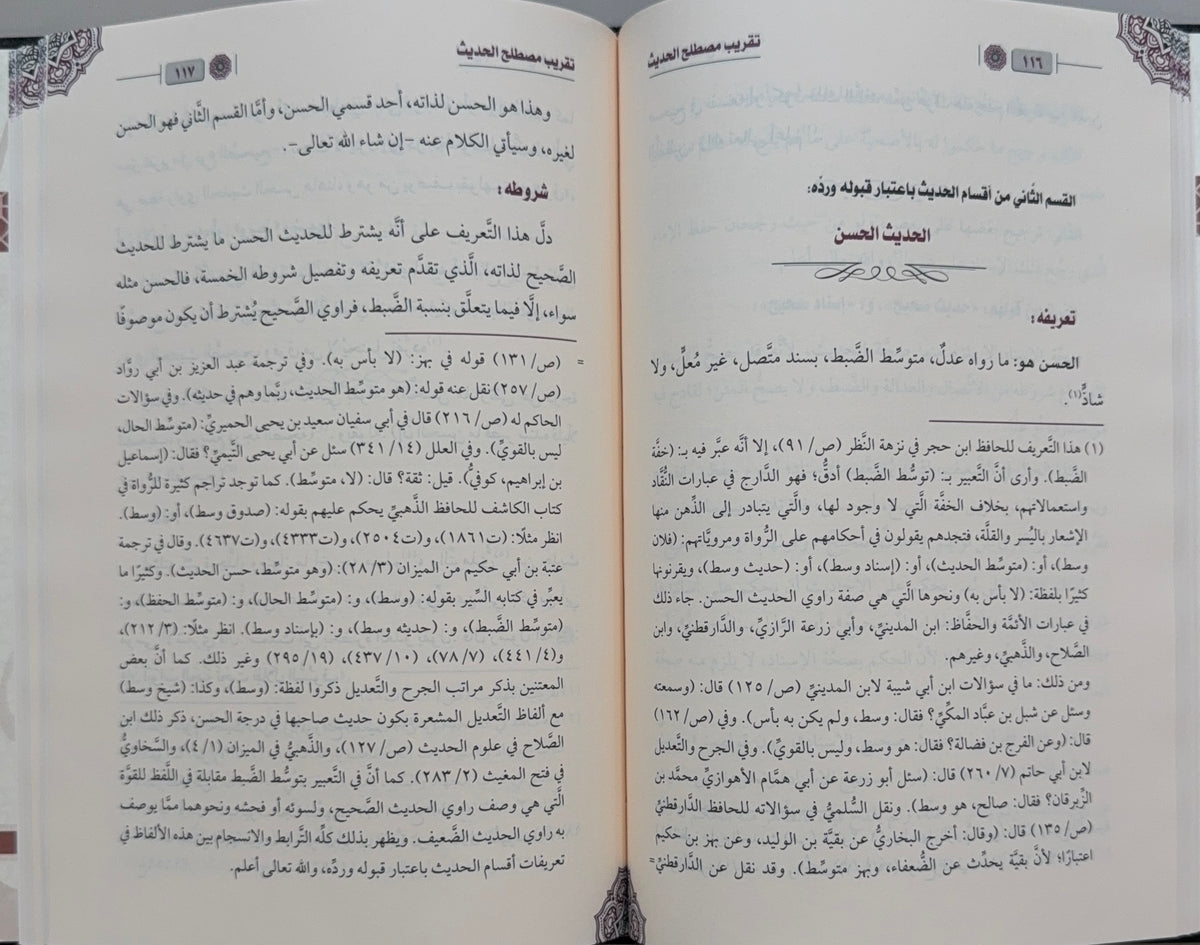 تقريب مصطلح الحديث
١١٦
القسم الثَّاني من أقسام الحديث باعتبار قبوله وردِّه:
الحديث الحسن
تعريفه:
الحسن هو: ما رواه عدلٌ، متوسِّط الضَّبط، بسند متَّصل، غير مُعلٍّ، ولا
شاذٍّ(١).
(١) هذا التَّعريف للحافظ ابن حجر في نزهة النَّظر (ص/ ٩١)، إلا أنَّه عبَّر فيه بـ: (خفَّة
الضَّبط). وأرى أنَّ التَّعبير بـ: (توسُّط الضَّبط) أدقُّ؛ فهو الدَّارج في عبارات النُّقَّاد
واستعمالاتهم، بخلاف الخفَّة الَّتي لا وجود لها، والَّتي يتبادر إلى الذِّهن منها
الإشعار باليُسر والقلَّة، فتجدهم يقولون في أحكامهم على الرُّواة ومرويَّاتهم: (فلان
وسط)، أو: (متوسِّط الحديث)، أو: (إسناد وسط)، أو: (حديث وسط)، ويقرنونها
كثيرًا بلفظة: (لا بأس به) ونحوها الَّتي هي صفة راوي الحديث الحسن. جاء ذلك
في عبارات الأئمَّة والحفَّاظ: ابن المدينيِّ، وأبي زرعة الرَّازيِّ، والدَّارقطنيِّ، وابن
الصَّلاح، والذَّهبيِّ، وغيرهم.
ومن ذلك: ما في سؤالات ابن أبي شيبة لابن المدينيِّ (ص/ ١٢٥) قال: (وسمعته
وسئل عن شبل بن عبَّاد المكِّيِّ؟ فقال: وسط، ولم يكن به بأس). وفي (ص/ ١٦٢)
قال: (وعن الفرج بن فضالة؟ فقال: هو وسط، وليس بالقويِّ). وفي الجرح والتَّعديل
لابن أبي حاتم (٧/ ٢٦٠) قال: (سئل أبو زرعة عن أبي همَّام الأهوازيِّ محمَّد بن
الزِّبرقان؟ فقال: صالح، هو وسط). ونقل السُّلميُّ في سؤالاته للحافظ الدَّارقطنيِّ
(ص/ ١٣٥) قال: (وقال: أخرج البخاريُّ عن بقيَّة بن الوليد، وعن بهز بن حكيم
اعتبارًا؛ لأنَّ بقيَّة يحدِّث عن الضُّعفاء، وبهز متوسِّط). وقد نقل عن الدَّارقطنيِّ =
تقريب مصطلح الحديث
١١٧
وهذا هو الحسن لذاته، أحد قسمي الحسن، وأمَّا القسم الثَّاني فهو الحسن
لغيره، وسيأتي الكلام عنه -إن شاء الله تعالى-.
شروطه:
دلَّ هذا التَّعريف على أنَّه يشترط للحديث الحسن ما يشترط للحديث
الصَّحيح لذاته، الَّذي تقدَّم تعريفه وتفصيل شروطه الخمسة، فالحسن مثله
سواء، إلَّا فيما يتعلَّق بنسبة الضَّبط، فراوي الصَّحيح يُشترط أن يكون موصوفًا
= (ص/ ١٣١) قوله في بهز: (لا بأس به). وفي ترجمة عبد العزيز بن أبي روَّاد
(ص/ ٢٥٧) نقل عنه قوله: (هو متوسِّط الحديث، ربَّما وهم في حديثه). وفي سؤالات
الحاكم له (ص/ ٢١٦) قال في أبي سفيان سعيد بن يحيى الحميريِّ: (متوسِّط الحال،
ليس بالقويِّ). وفي العلل (١٤/ ٣٤١) سئل عن أبي يحيى التَّيميِّ؟ فقال: (إسماعيل
بن إبراهيم، كوفيٌّ). قيل: ثقة؟ قال: (لا، متوسِّط). كما توجد تراجم كثيرة للرُّواة في
كتاب الكاشف للحافظ الذَّهبيِّ يحكم عليهم بقوله: (صدوق وسط)، أو: (وسط).
انظر مثلًا: (ت١٨٦١)، و(ت٢٥٠٤)، و(ت٤٣٣٣)، و(ت٤٦٣٧). وقال في ترجمة
عتبة بن أبي حكيم من الميزان (٣/ ٢٨): (وهو متوسِّط، حسن الحديث). وكثيرًا ما
يعبِّر في كتابه السِّير بقوله: (وسط)، و: (متوسِّط الحال)، و: (متوسِّط الحفظ)، و:
(متوسِّط الضَّبط)، و: (حديثه وسط)، و: (بإسناد وسط). انظر مثلًا: (٣/ ٢١٢)،
و(٤/ ٤٤١)، (٧/ ٧٨)، (١٠/ ٤٣٧)، (١٩/ ٢٩٥) وغير ذلك. كما أنَّ بعض
المعتنين بذكر مراتب الجرح والتَّعديل ذكروا لفظة: (وسط)، وكذا: (شيخ وسط)
مع ألفاظ التَّعديل المشعرة بكون حديث صاحبها في درجة الحسن، ذكر ذلك ابن
الصَّلاح في علوم الحديث (ص/ ١٢٧)، والذَّهبيُّ في الميزان (١/ ٤)، والسَّخاويُّ
في فتح المغيث (٢/ ٢٨٣). كما أنَّ في التَّعبير بتوسُّط الضَّبط مقابلة في اللَّفظ للقوَّة
الَّتي هي وصف راوي الحديث الصَّحيح، ولسوئه أو فحشه ونحوهما ممَّا يوصف
به راوي الحديث الضَّعيف. ويظهر بذلك كلِّه التَّرابط والانسجام بين هذه الألفاظ في
تعريفات أقسام الحديث باعتبار قبوله وردِّه، والله تعالى أعلم.